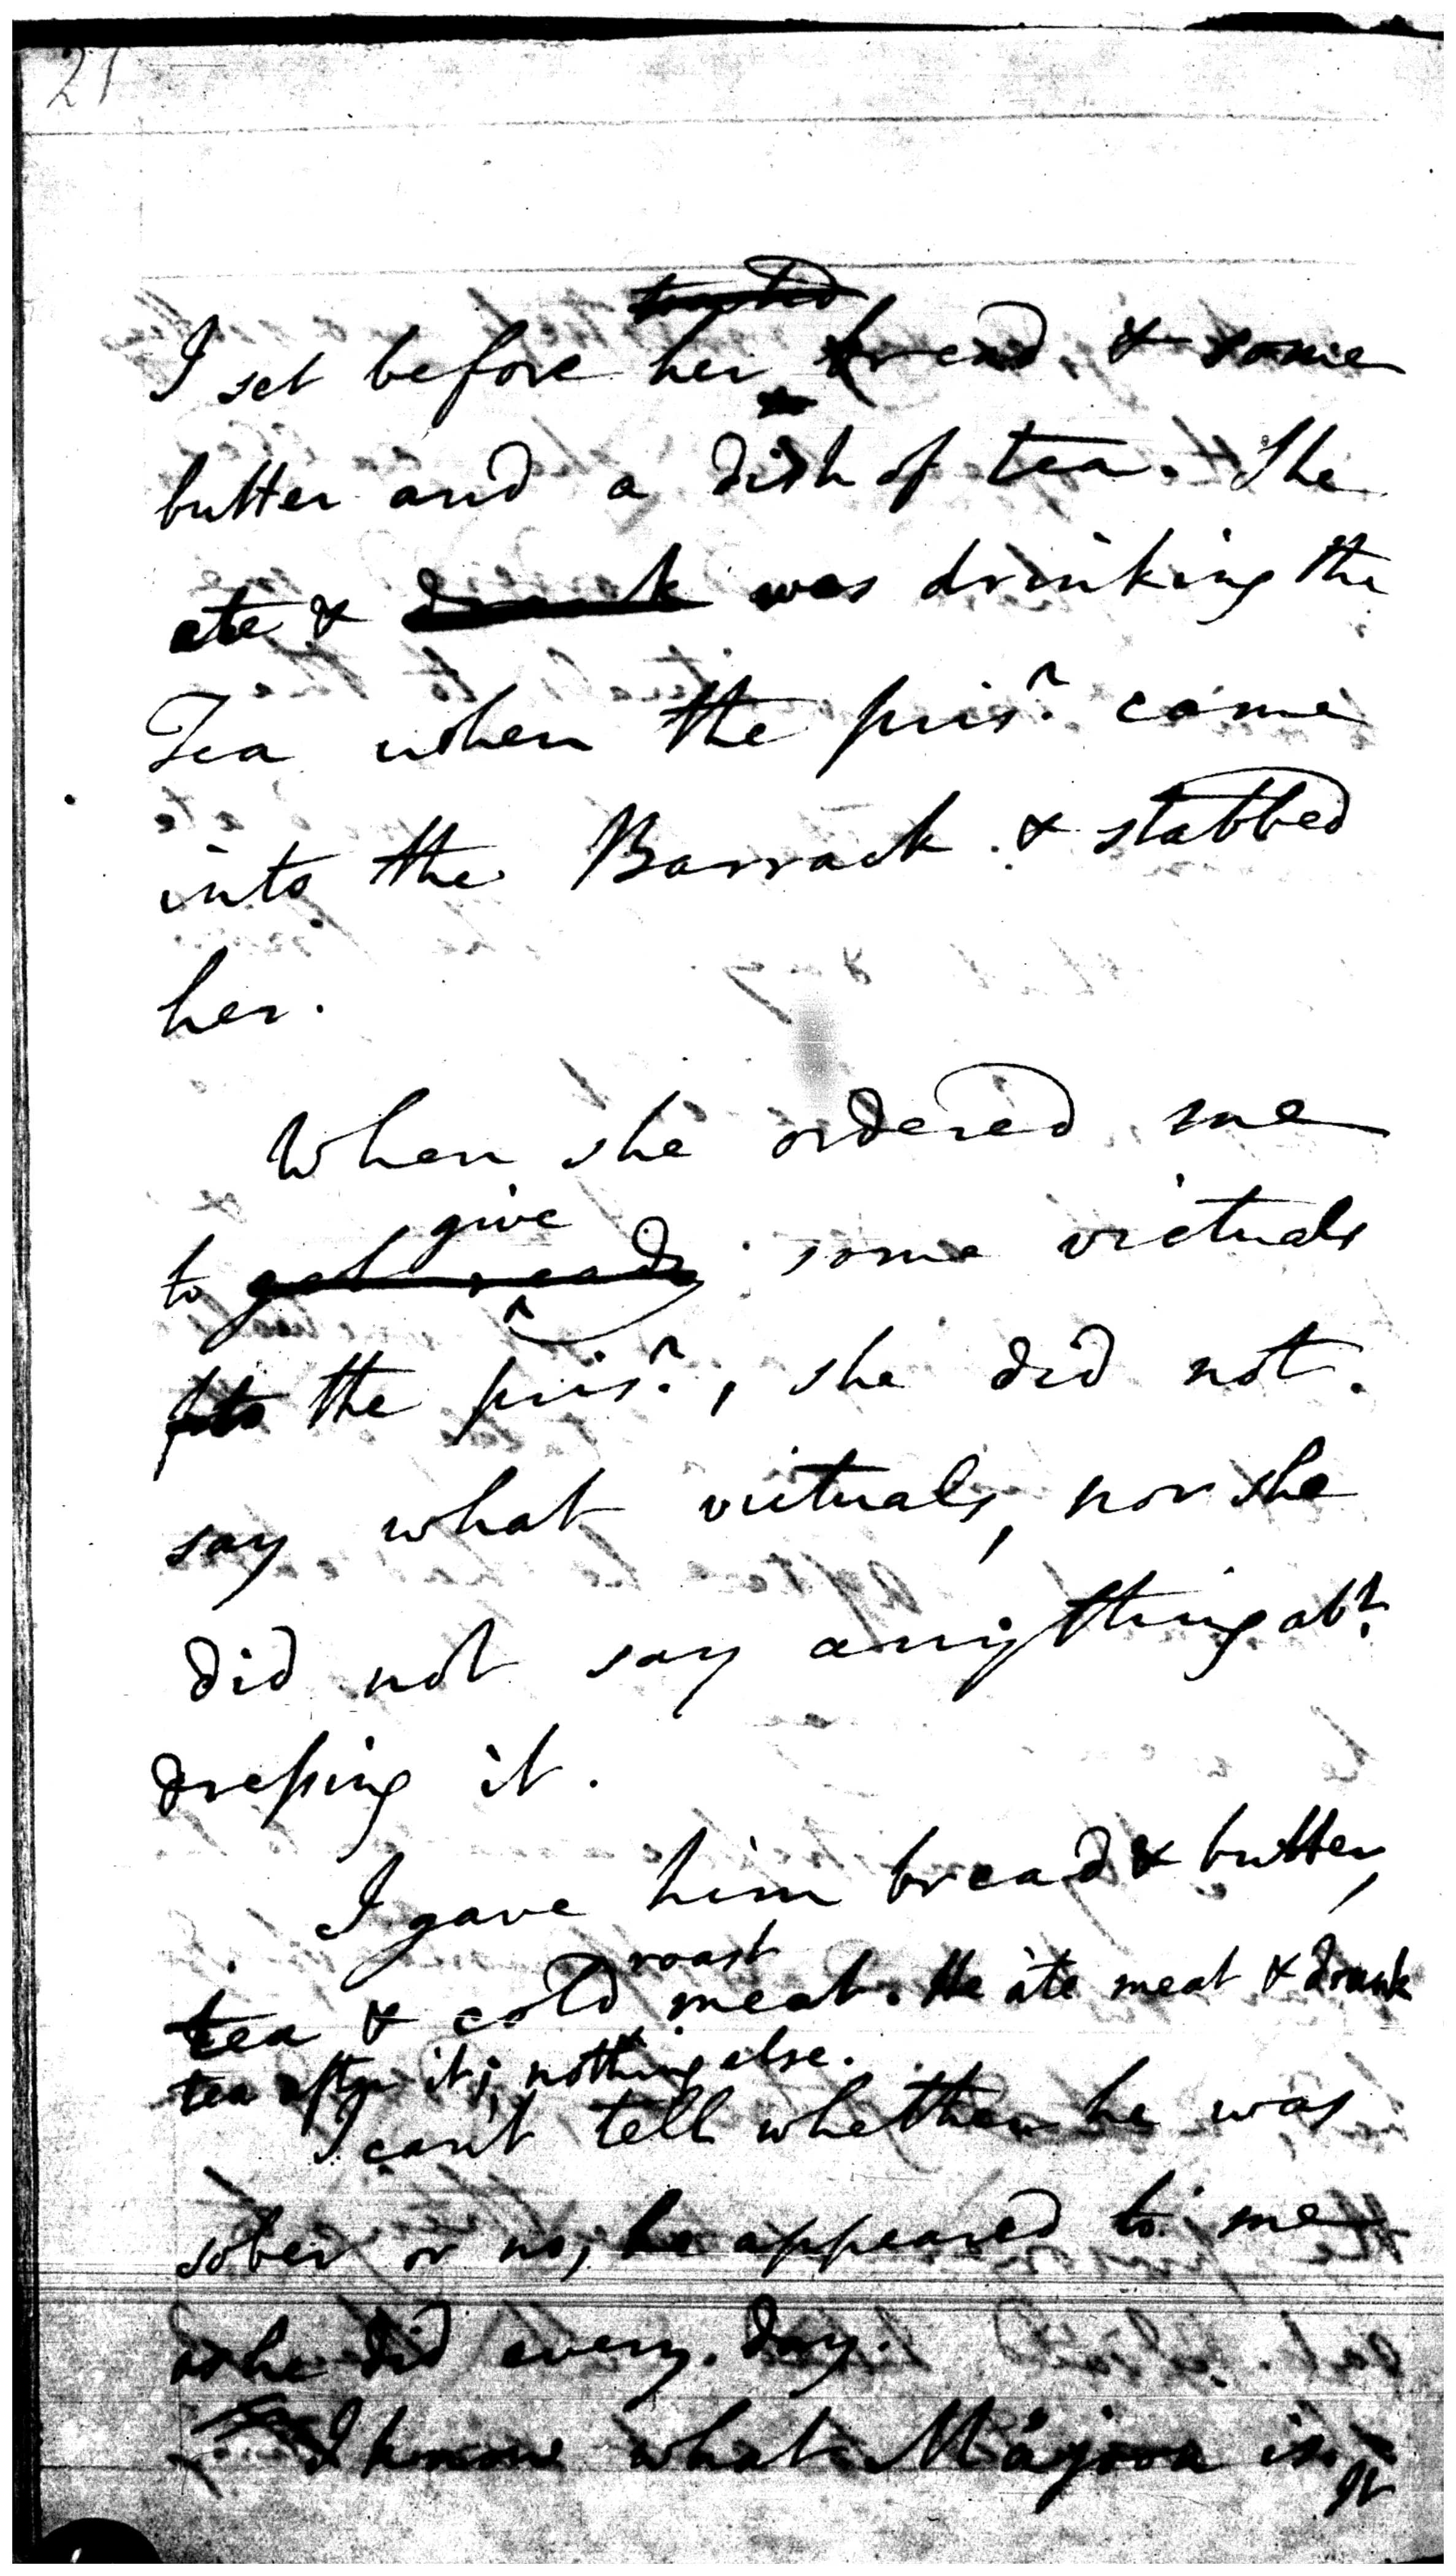 21
toasted
I set before her bread, & some
butter and a dish of tea. She
ate & drank was drinking the
Tea when the pris.r came
into the Barrack & stabbed
her.
When she ordered me
give
to get ready some victuals
to the pris.r, she did not
say what victuals, nor she
did not say anything ab.t
dressing it.
I gave him bread & butter,
roast
tea & cold meat. He ate meat & drank
tea after it; nothing else.
I can't tell whether he was
sober or no; he appeared to me
as he did every day.
I know what Majoon is. It